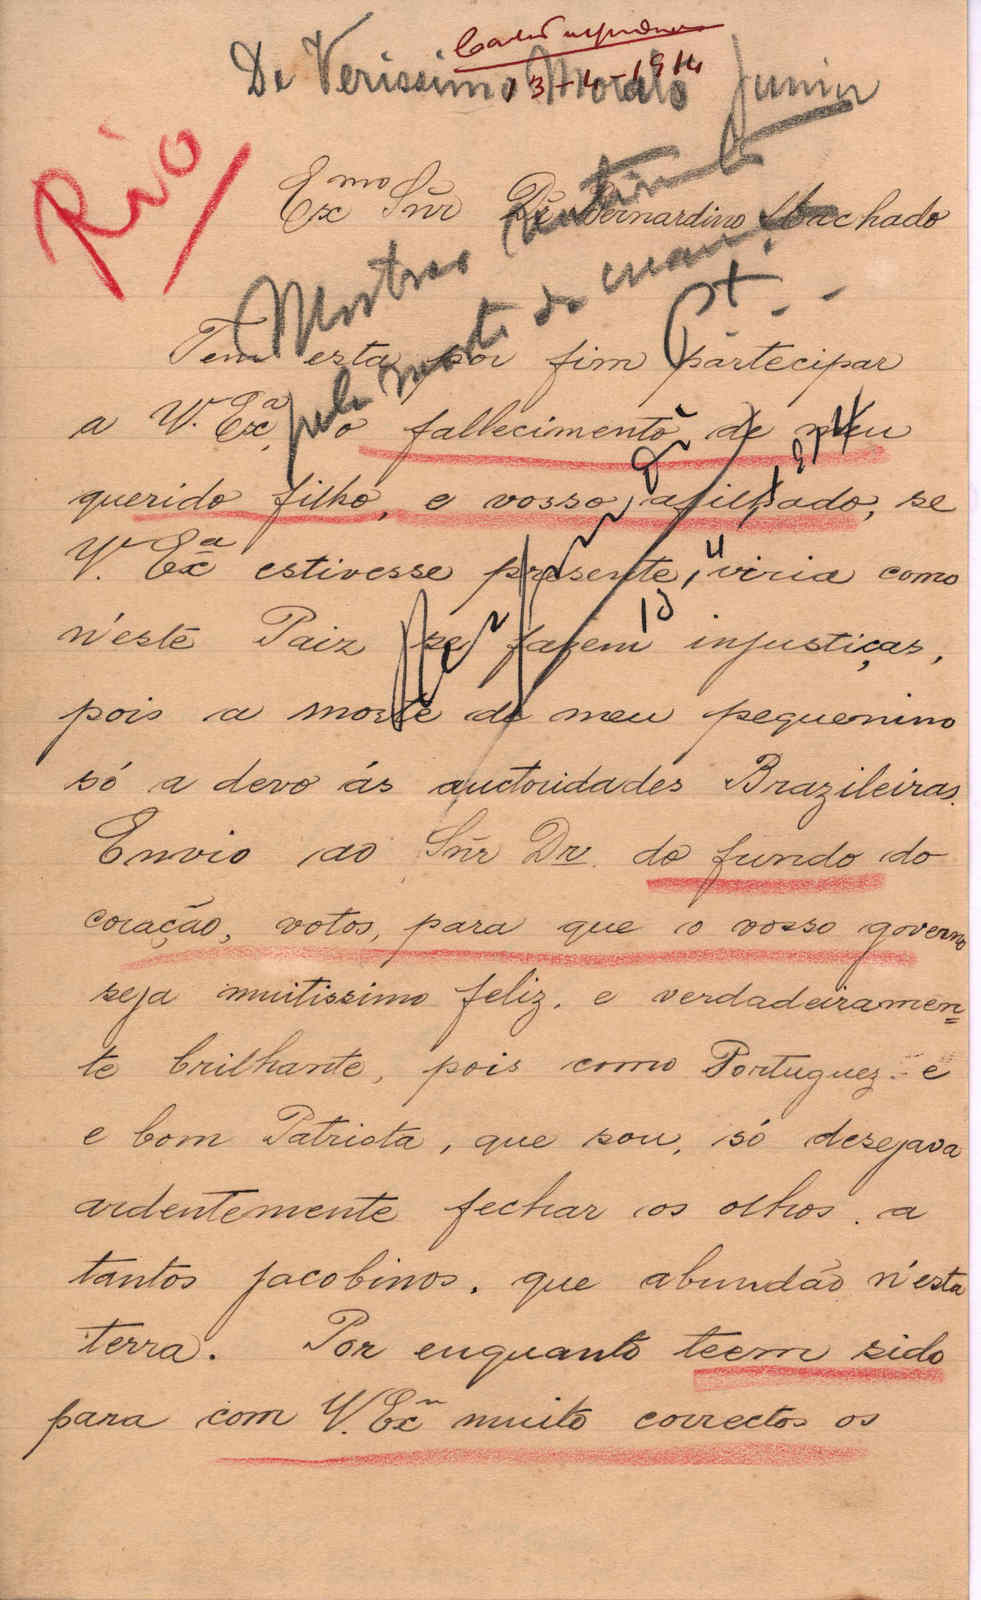 13-4-1914
De Verissimo Morats Junior
Rio
Exmo Snr Dr Bernardino Machado
Mostrar
pela morte do
Tem esta por fim partecipar
a V. Exa, o fallecimento de meu
querido filho, e vosso afilhado, se
V. Exa estivesse presente, viria como
n'este Paiz se fazem injustiças,
pois a morte do meu pequenino
só a devo ás auctoridades Brazileiras.
Envio ao Snr Dr. do fundo do
coração, votos, para que o vosso governo
seja muitissimo feliz, e verdadeiramen=
te brilhante, pois como Portuguez e
e bom Patriota, que sou, só desejava
ardentemente fechar os olhos a
tantos jacobinos, que abundão n'esta
terra. Por enquanto teem sido
para com V. Exa muito correctos os